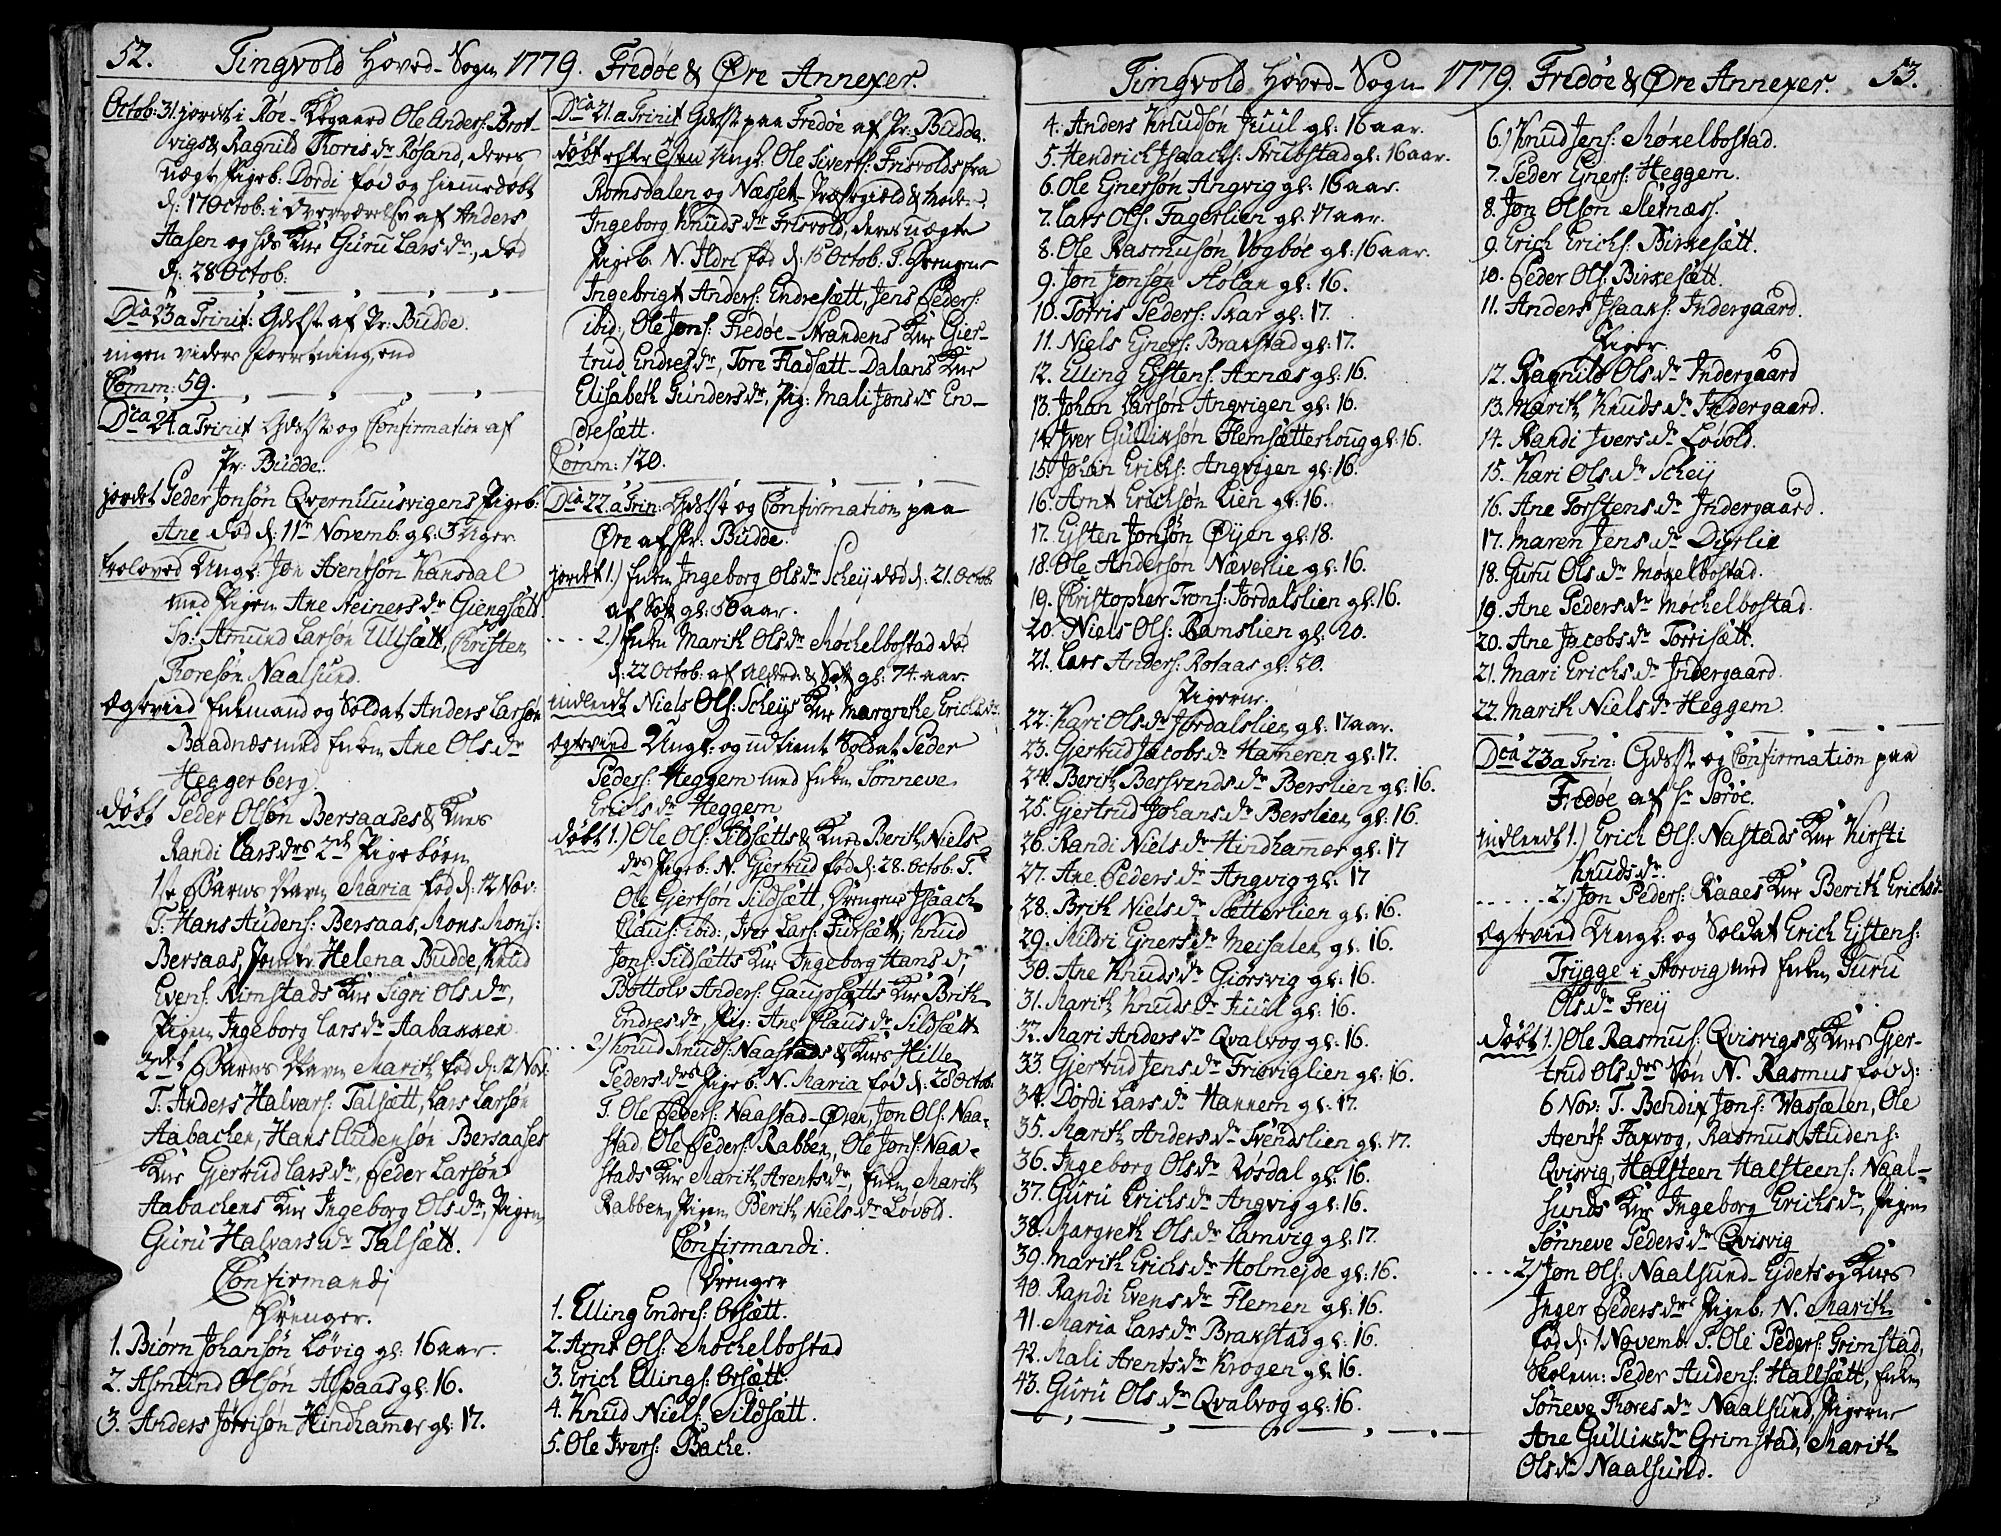 52. Tingvold Hoved-Sogn 1779. Fredøe & Øre Annexer.
Octob: 31. jordet i Roe-Kirgaard Ole Anders: Brot-
vigs & Ragnild Thores dr Rosand, deres
uægte Pigeb: Dordi fød og hiemmedøbt
d: 17 Octob: i Overværelse af Anders
Aasen og hds Kne Guru Lars dr, død
d: 28 Octob:
Dca 23 a Trinit: Gdstst af Pr: Budde.
ingen videre Forretning, end
Comm: 59.
Dca 24 a Trinit Gdstst og Confirmation af
Pr: Budde.
jordet Peder Jonsøn Qvernhuusvigens Pigeb:
Ane død d: 11te Novemb. gl: 3 Uger
troloved Ungk: Jon Arentsøn Hansdal
med Pigen Ane Steiners dr Giengsætt.
Sp: Asmund Larsøn Ullsætt, Christen
Thoresøn Naalsund.
Ægtevied Enkemand og Soldat Anders Larsøn
Baadnæs med Enken Ane Ols dr
Heggerberg
døbt Peder Olsøn Bersaases & Knes
Randi Lars drs 2de Pigebørn
1te Barns Navn Maria fød d: 12 Nov:
T: Hans Audens: Bersaas, Mons Mons:
Bersaas, Jomfr. Helena Budde, Knud
Evens: Rimstads Kne Sigri Ols dr,
Pigen Ingeborg Lars dr Aabakken.
2det Barns Navn Marith fød d: 2 Nov:
T: Anders Halvars: Talsætt, Lars Larsøn
Aabachen, Hans Audensøn Bersaases
Kne Gjertrud Lars dr, Peder Larsøn
Aabachens Kne Ingeborg Ols dr, Pigen
Guru Halvars dr Talsætt.
Confirmandi
Drenger.
1. Biørn Johansøn Løvig gl: 16 aar.
2. Asmund Olsøn Aspaas gl: 16.
3. Anders Jørrisøn Hindhammer gl: 17.
Dca 21. a Trinit Gdstst paa Fredøe af Pr: Budda.
døbt efter Ungk: Ole Siverts: Frisvolds fra
Romsdalen og Næsset-Præstegield & Moder
Ingeborg Knuds dr Frisvold, deres uægte
Pigeb. N. Ildri fød d: 15 Octob. T. Drengene
Ingebrigt Anders: Endresætt, Jens Peders:
ibid; Ole Jons: Fredøe-Strandens Kne Gier-
trud Endres dr, Tore Fladsætt-Dalans Kne
Elisabeth Gunders dr, Pig: Mali Jons dr En-
dresætt.
Comm: 120.
Dca 22. a Trin: Gdstst og Confirmation paa
Øre af Pr: Budde.
jordet 1.) Enken Ingeborg Ols dr Scheij død d: 21. Octob.
af Sott gl: 50 aar.
.... 2.) Enken Marith Ols dr Møchelbostad død
d: 22 Octob: af Alderd: & Sott gl: 74. aar.
indledt Niels Ols: Scheijs Kne Margrethe Erichs dr.
Ægtevied Ungk: og udtient Soldat Peder
Peders: Heggem med Enken Sønneve
Erichs dr Heggem
døbt 1.) Ole Ols: Sildsætts & Knes Berith Niels
drs Pigeb. N. Gjertrud fød d: 28. Octob. T.
Ole Gjertsøn Sildsætt, Drengene Isaach
Claus: ibid:, Iver Lars: Furesætt, Knud
Jons: Sildsætts Kne Ingeborg Hans dr,
Bottolv Anders: Gaupsætts Kne Brith
Endres dr, Pig: Ane Claus dr Sildsætt
... 2.) Knud Knuds: Naastads & Knes Hille
Peders drs Pigeb. N. Maria fød d: 28 Octob:
T. Ole Peders: Naastad-Øren, Jon Ols: Naa-
stad, Ole Peders: Rabben, Ole Jons: Naa-
stads Kne Marith Arents dr, Enken Marith
Rabben, Pigen Berith Niels dr Løvold.
Confirmandi.
Drenger
1. Elling Endres: Orsætt.
2. Arnt Ols: Møchelbostad
3. Erich Ellings: Orsætt.
4. Knud Niels: Sildsætt.
5. Ole Ivers: Bache.
Tingvold Hoved-Sogn 1779. Fredøe & Øre Annexer. 53.
4. Anders Knudsøn Juul gl: 16 aar.
5. Hendrich Isaachs: Strubstad gl: 16 aar.
6. Ole Ejnersøn Angvig gl: 16 aar.
7. Lars Ols: Fagerlien gl: 17 aar.
8. Ole Rasmusøn Vogbøe gl: 16 aar.
9. Jon Jonsøn Stolan gl: 16.
10. Torris Peders: Skar gl: 17.
11. Niels Ejners: Brakstad gl: 17.
12. Elling Estens: Axnæs gl: 16.
13. Johan Larsøn Angvigen gl: 16.
14. Iver Gulliksøn Flemsætteshoug gl: 16.
15. Johan Erichs: Angvigen gl: 16.
16. Arnt Erichsøn Lien gl: 16.
17. Esten Jonsøn Øyen gl: 18.
18. Ole Andersøn Næverlie gl: 16.
19. Christopher Trons: Jordalslien gl: 16.
20. Niels Ols: Ramslien gl: 20.
21. Lars Anders: Rolaas gl: 50.
Pigerne.
22. Kari Ols dr Jordalslien gl: 17 aar.
23. Gjertrud Jacobs dr Hammeren gl: 17.
24. Berith Bersvends dr Berslien gl: 16.
25. Gjertrud Johans dr Berslien gl: 16.
26. Randi Niels dr Hindhammer gl: 17
27. Ane Peders dr Angvig gl: 17
28. Brith Niels dr Sætterlien gl: 16.
29. Mildri Ejners dr Meisalen gl: 16.
30. Ane Knuds dr Giørsvig gl: 16.
31. Marith Knuds dr Juul gl: 16.
32. Mari Anders dr Qvalvog gl: 16.
33. Gjertrud Jens dr Frisviglien gl: 16.
34. Dordi Lars dr Hannem gl: 17.
35. Marith Anders dr Svendslien gl: 17.
36. Ingeborg Ols dr Røsdal gl: 16.
37. Guru Erichs dr Angvig gl: 16.
38. Margreth Ols dr Lamvig gl: 17.
39. Marith Erichs dr Holmejde gl: 16.
40. Randi Evens dr Flemen gl: 16.
41. Maria Lars dr Brakstad gl: 16.
42. Mali Arents dr Krogen gl: 16.
43. Guru Ols dr Qvalvog gl: 16.
6. Knud Jens: Møkelbostad.
7. Peder Ejners: Heggem.
8. Jon Olsøn Sletnæss.
9. Erich Erichs: Birkesætt.
10. Peder Ols: Birkesætt.
11. Anders Isaaks: Indergaard.
Piger
12. Ragnild Ols dr Indergaard
13. Marith Knuds dr Indergaard.
14. Randi Ivers dr Løvold.
15. Kari Ols dr Scheij
16. Ane Torstens dr Indergaard.
17. Maren Jens dr Dyrlie
18. Guru Ols dr Møkelbostad.
19. Ane Peders dr Møchelbostad.
20. Ane Jacobs dr Torrisætt.
21. Mari Erichs dr Indergaard.
22. Marith Niels dr Heggem.
Dca 23 a Trin: Gdstst og Confirmation paa
Fredøe af Hr Sørøe.
indledt 1.) Erich Ols: Nastads Kne Kirsti
Knuds dr.
..... 2.) Jon Peders: Raaes Kne Berith Erichs dr
Ægtevied Ungk: og Soldat Erich Estens:
Trygge i Storvig med Enken Guru
Ols dr Freij
døbt 1.) Ole Rasmus: Qvisvigs & Knes Gjer-
trud Ols drs Søn N. Rasmus fød d:
6 Nov: T. Bendix Jons: Wassælen, Ole
Arents: Faxvog, Rasmus Audens:
Qvisvig, Halsteen Halsteens: Naal-
sunds Kne Ingeborg Erichs dr, Pigen
Sønneve Peders dr Qvisvig
.... 2.) Jon Ols: Naalsund-Ejdets og Knes
Inger Peders drs Pigeb. N. Marith
fød d: 1 Novemb. T. Ole Peders: Grimstad,
Skolem: Peder Audens: Hallsætt, Enken
Sønneve Thores dr Naalsund, Pigerne
Ane Gulliks dr Grimstad, Marith
Ols dr Naalsund.